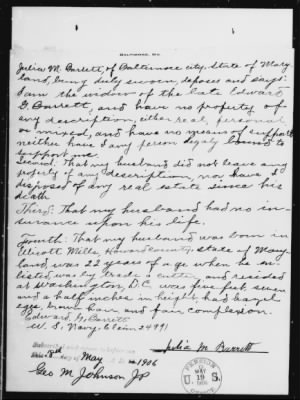 BALTIMORE, MD.
Julia M. Barrett, of Baltimore city, State of Mary
land, being duly sworn, deposes and says:
I am the widow of the late Edward
G. Barrett, and have no property of
any description, either real, personal
or mixed, and have no means of support
neither have I any person legaly bound to
support me
Second: That my husband did not leave any
property of any description, nor have I
disposed of any real estate since his
death
Third: That my husband had no in-
surance upon his life.
Fourth: That my husband was born in
Mills, Howard county, State of Mary
land, was 22 years of age when he en-
listed was by trade a and resided
at Washington, D.C. was five feet seven
and a half inches in height, had hazel
eyes, brown hair and fair complexion.
Edward G. Barrett
U.S. Navy, Claim 24991
Julia M Barrett
18th day of May 1906
Geo M Johnson JP
PENSION
MAY
19
1906
U. S.
OFFICE